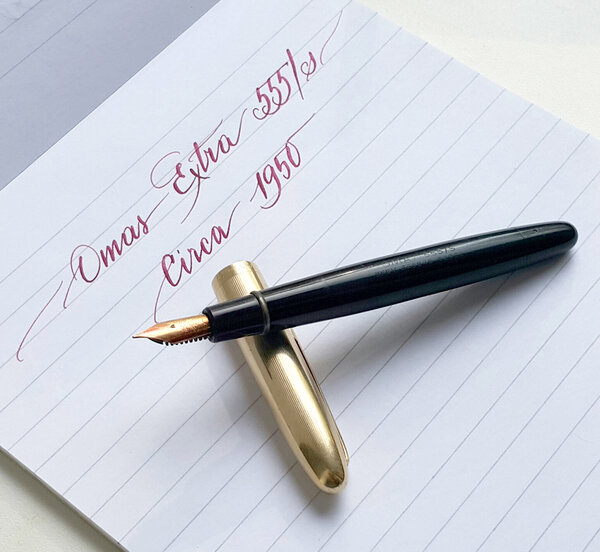 Omas Extra 555/s
Circa 1950